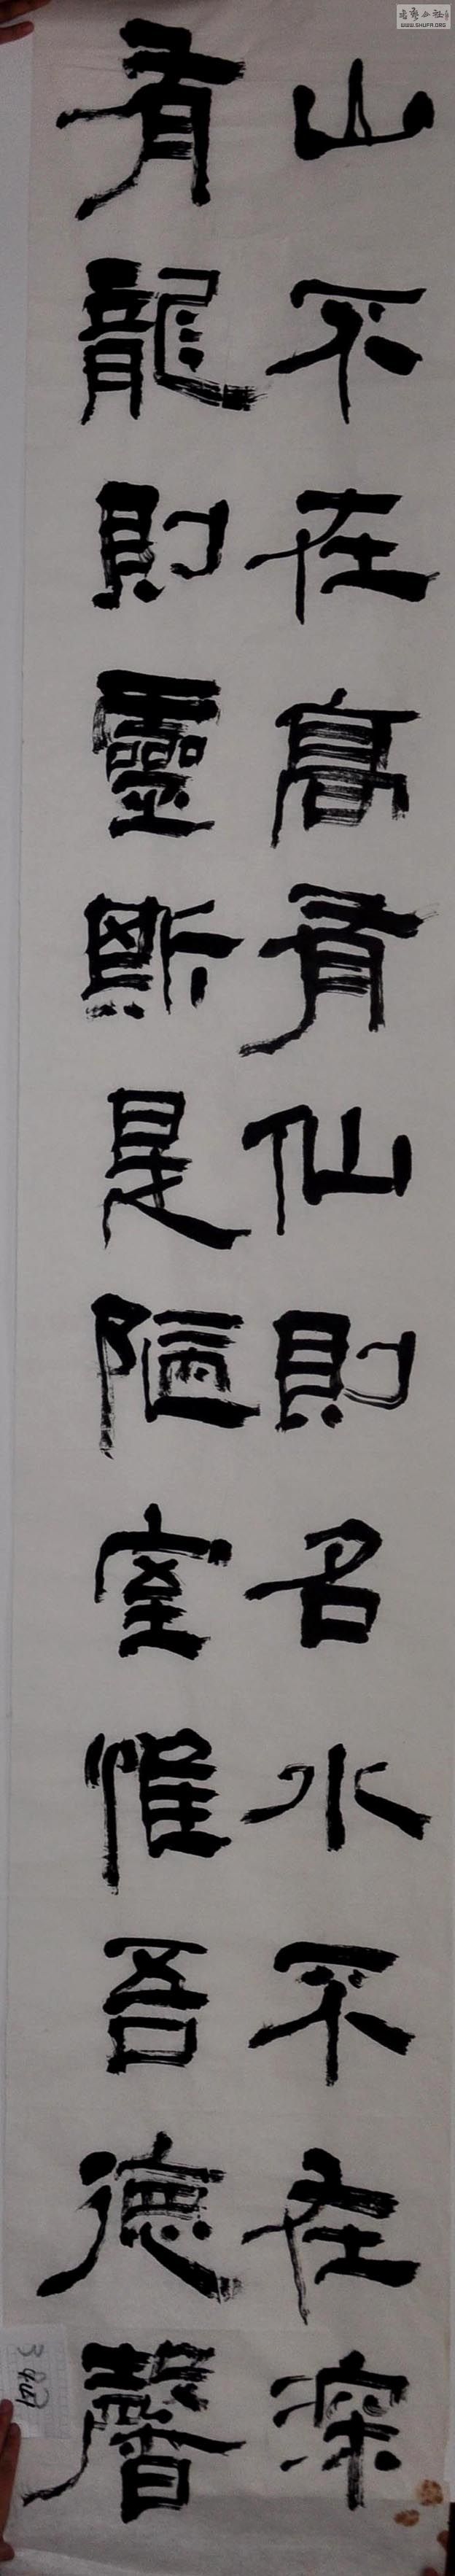 山不在高有仙則名水不在深
有龍則靈斯是陋室惟吾德馨
WWW.SHUFA.ORG